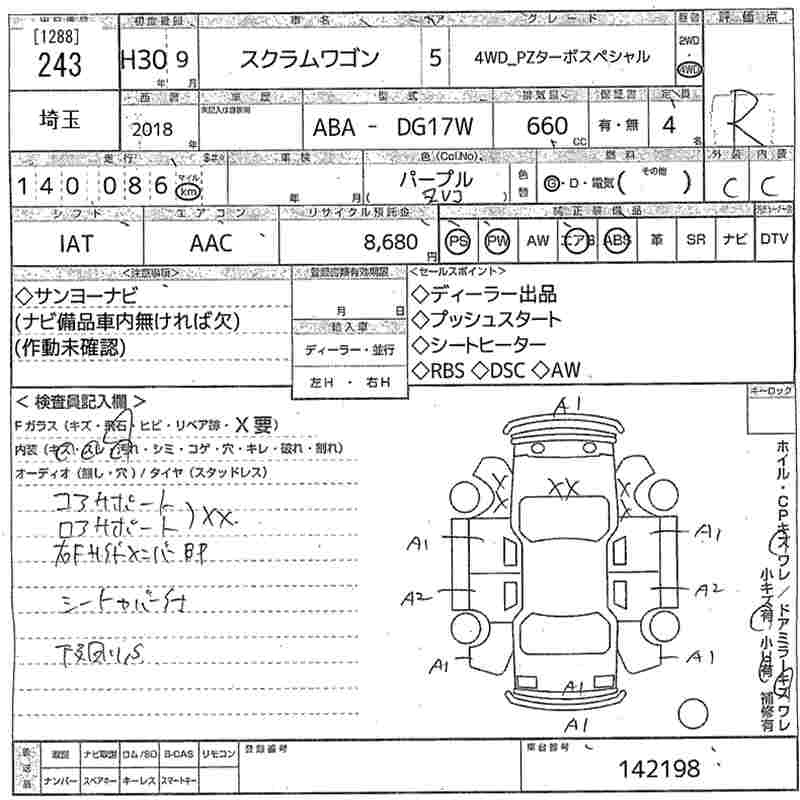 出品番号 初度登録 車名 ドア グレード 駆動 評価点
[1288]
243 H30 9 スクラムワゴン 5 4WD_PZターボスペシャル 2WD ・ 4WD R
年 月
埼玉 西暦 車歴 型式 排気量 保証書 定員
2018 年 ABA - DG17W 660 CC 有・無 4 名
走行 車検 色(Col.No) 燃料 外装 内装
140086 マイル km 年 月 パープル 色替 G・D・電気( その他 ) C C
( ZVJ )
シフト エアコン リサイクル預託金 純正装備品
IAT AAC 8,680 円 PS PW AW エアB ABS 革 SR ナビ DTV
<注意事項> 登録書類有効期限 <セールスポイント>
◇サンヨーナビ ◇ディーラー出品
(ナビ備品車内無ければ欠) 月 日 ◇プッシュスタート
(作動未確認) 輸入車 ◇シートヒーター
ディーラー・並行 ◇RBS ◇DSC ◇AW
左H ・ 右H
<検査員記入欄> キーロック
Fガラス(キズ・飛石・ヒビ・リペア跡・X要)
内装(キズ・スレ・汚れ・シミ・コゲ・穴・キレ・破れ・割れ)
オーディオ(無し・穴)/タイヤ(スタッドレス)
コアサポート
ロアサポート ) XX
右Fサイドメンバー
シートカバー付
A1
X X XX X X
A1 A1
A2 A2
A1 A1 A1
A1
ホイル・CPキズワレ/ドアミラーキズワレ
小キズ有 小凹有 補修有
発送品 取説 ナビ取説 ロム/SD B-CAS リモコン 登録番号 車台番号
ナンバー スペアキー キーレス スマートキー 142198